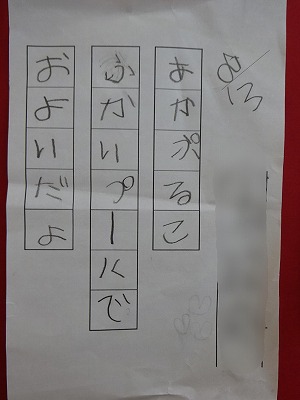 8/13
あかぷるこ
ふかいプールで
およいだよ